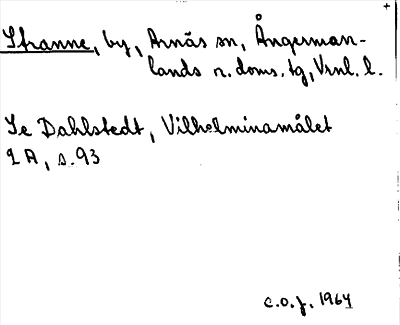 Stranne, by, Arnäs sn, Ångerman-
lands n. doms. tg, Vrnl. l.
Se Dahlstedt, Vilhelminamålet
2 A, s. 93
c.o.f. 1964